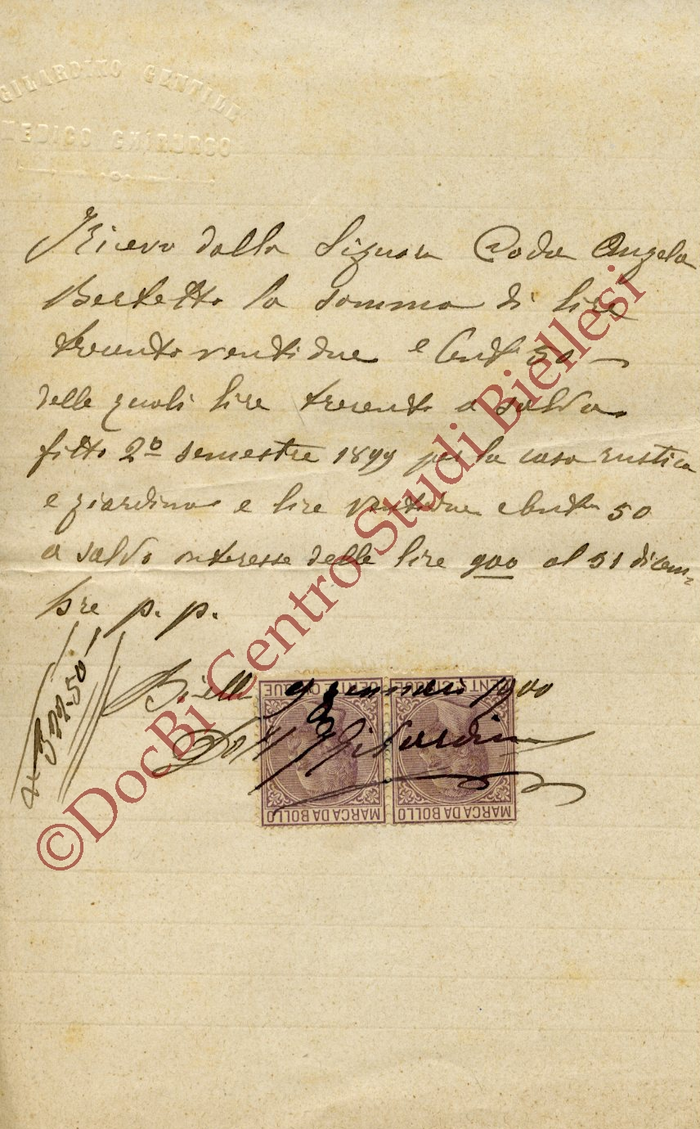 GILARDINO GENTILE
MEDICO CHIRURGO
Ricevo dalla Signora Coda Angela
Bertetto la somma di lire
trecento ventidue e Cent. 50 —
delle quali lire trecento a saldo
fitto 2º semestre 1899 per la casa rustica
e giardino e lire ventidue e Cent. 50
a saldo interesse delle lire 900 al 31 dicem-
bre p. p.
322.50
Biella 9 gennaio 1900
Dott. G. Gilardino
CENT. CINQUE
CENT. CINQUE
MARCA DA BOLLO
MARCA DA BOLLO
©DocBi Centro Studi Biellesi